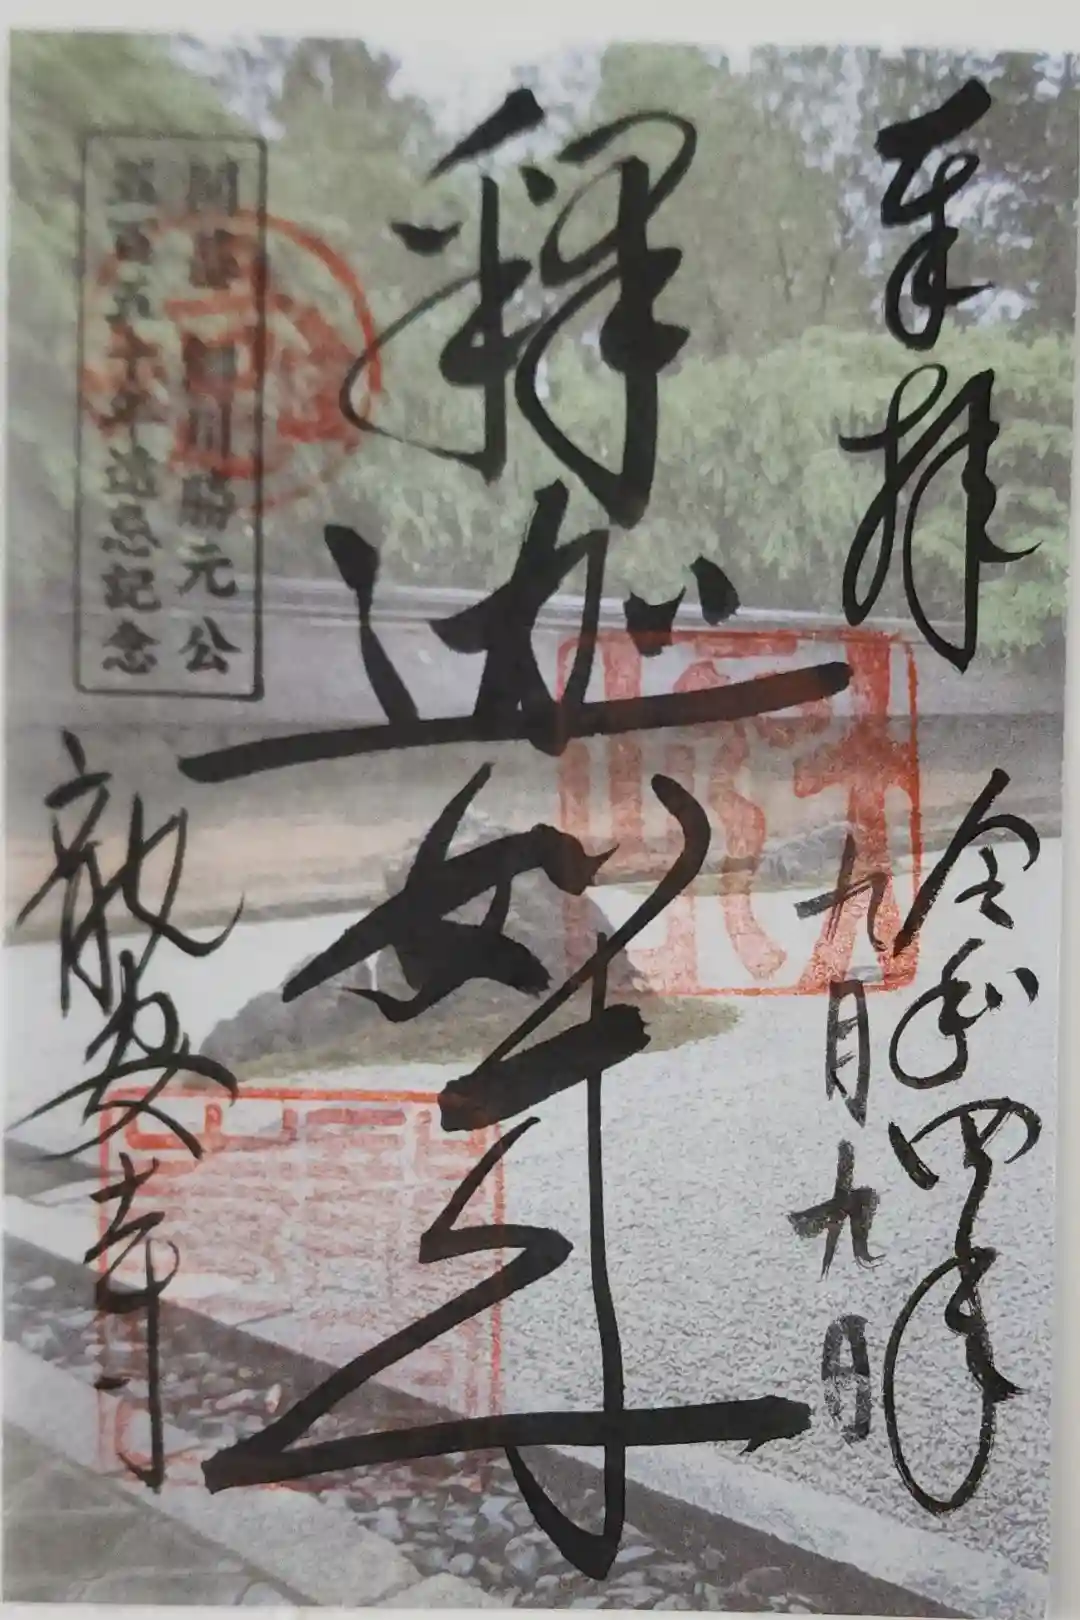 奉拝
令和四年
九月九日
釋迦如来
開基 細川勝元公
五百五十年遠忌記念
龍安寺